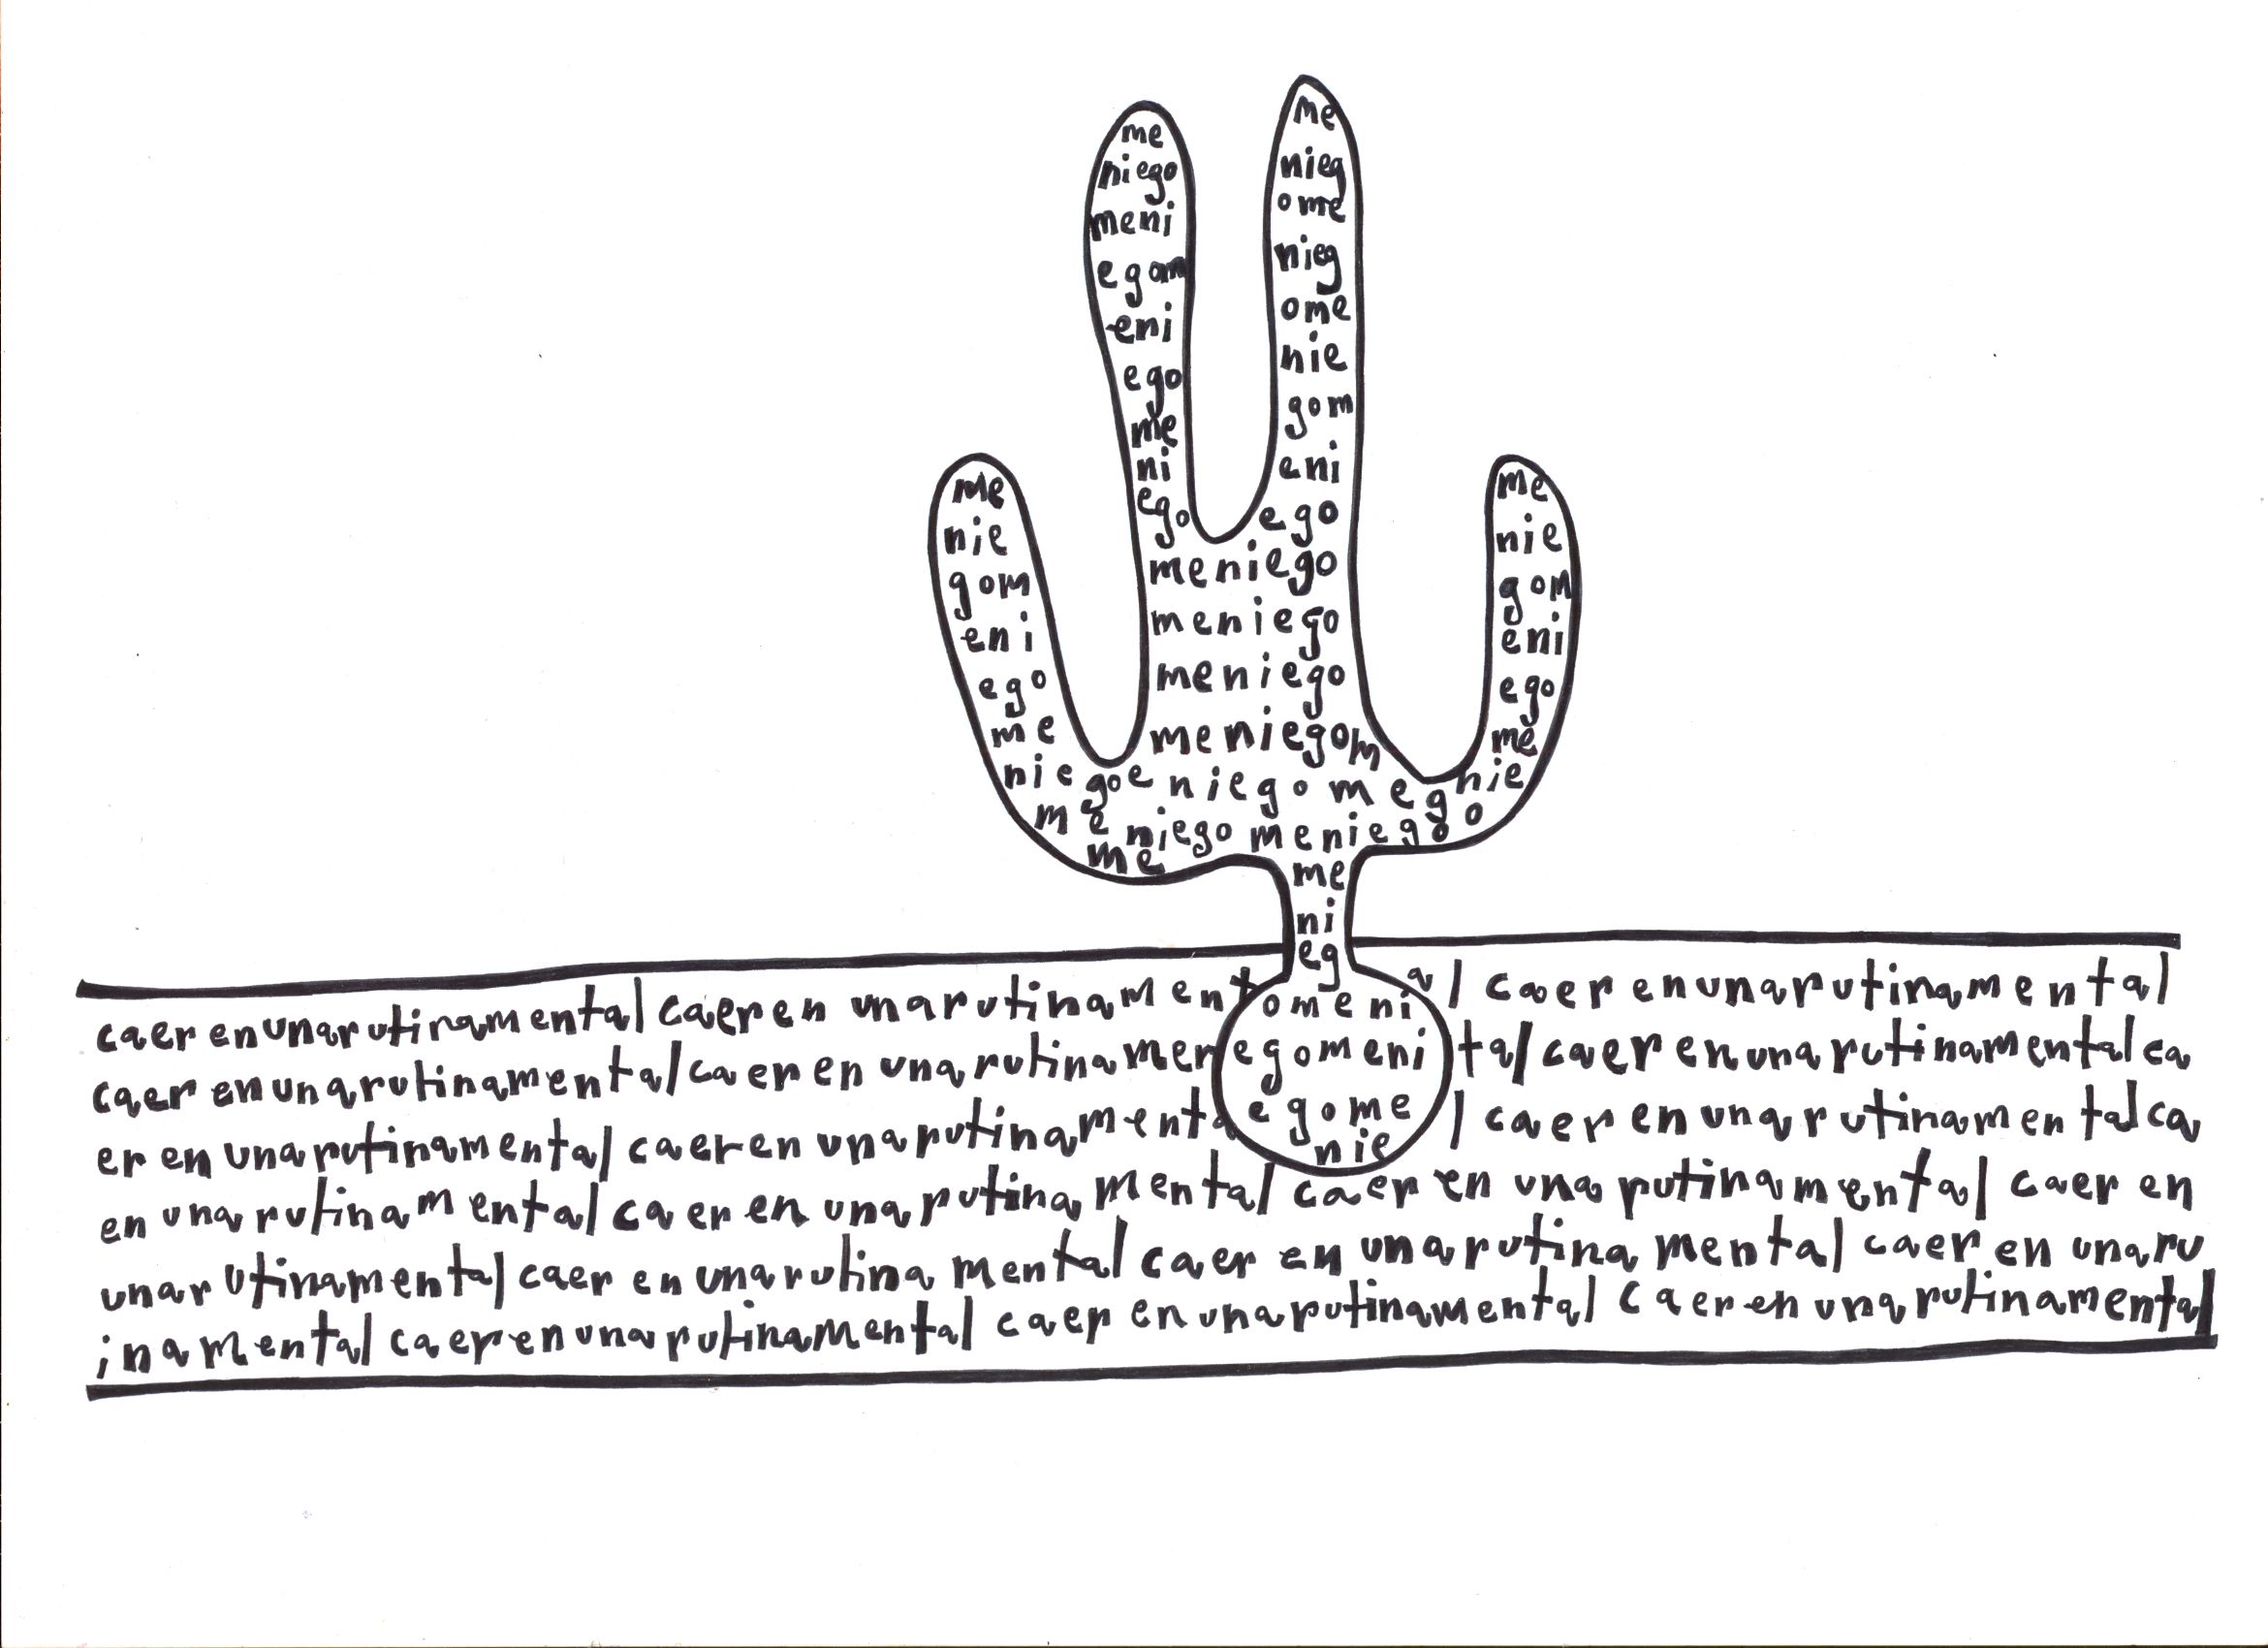 me
niego
meni
egom
eni
ego
me
ni
ego
me
nieg
ome
nieg
ome
nie
gom
eni
ego
me
nie
gom
eni
ego
me
niego
me
me
me
nie
gom
eni
ego
me
nie
g o
meniego
meniego
meniego
meniegom
eniego me
niego meniego
me
ni
eg
omeni
egomeni
egome
nie
caer enunarutinamental caeren unarutinament al caer enunarutinamental
caer enunarutinamental caer en unarutinamen tal caer enunarutinamental ca
er en unarutinamental caeren unarutinamenta l caer en unarutinamental ca
en unarutinamental caer en unarutina mental caer en una rutinamental caer en
unarutinamental caer en unarutina mental caer en unarutina mental caer en unaru
inamental caerenunarutinamental caer en unarutinamental caer en unarutinamental